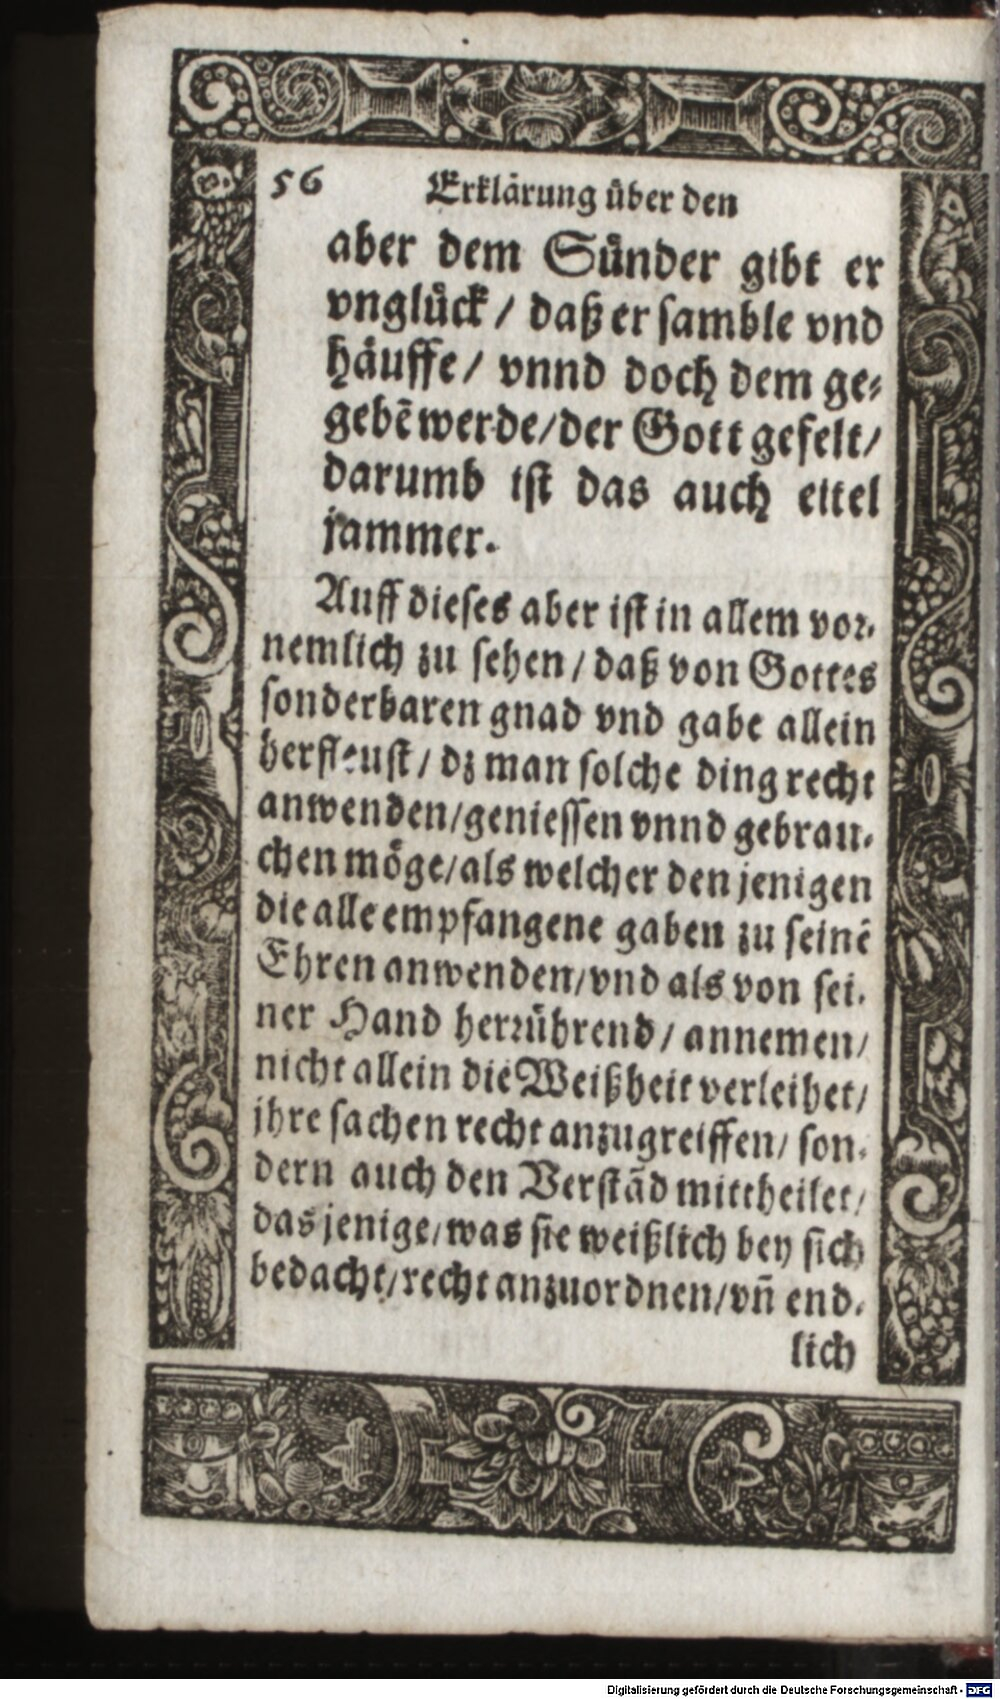 56 Erklärung über den
aber dem Sünder gibt er
vnglück / daß er samble vnd
häuffe / vnnd doch dem ge-
gebē werde / der Gott gefelt /
darumb ist das auch eitel
jammer.
Auff dieses aber ist in allem vor-
nemlich zu sehen / daß von Gottes
sonderbaren gnad vnd gabe allein
herfleust / dz man solche ding recht
anwenden / geniessen vnnd gebrau-
chen möge / als welcher den jenigen
die alle empfangene gaben zu seinē
Ehren anwenden / vnd als von sei-
ner Hand herrührend / annemen /
nicht allein die Weißheit verleihet /
jhre sachen recht anzugreiffen / son-
dern auch den Verstād mittheilet /
das jenige / was sie weißlich bey sich
bedacht / recht anzuordnen / vñ end-
lich
Digitalisierung gefördert durch die Deutsche Forschungsgemeinschaft - DFG